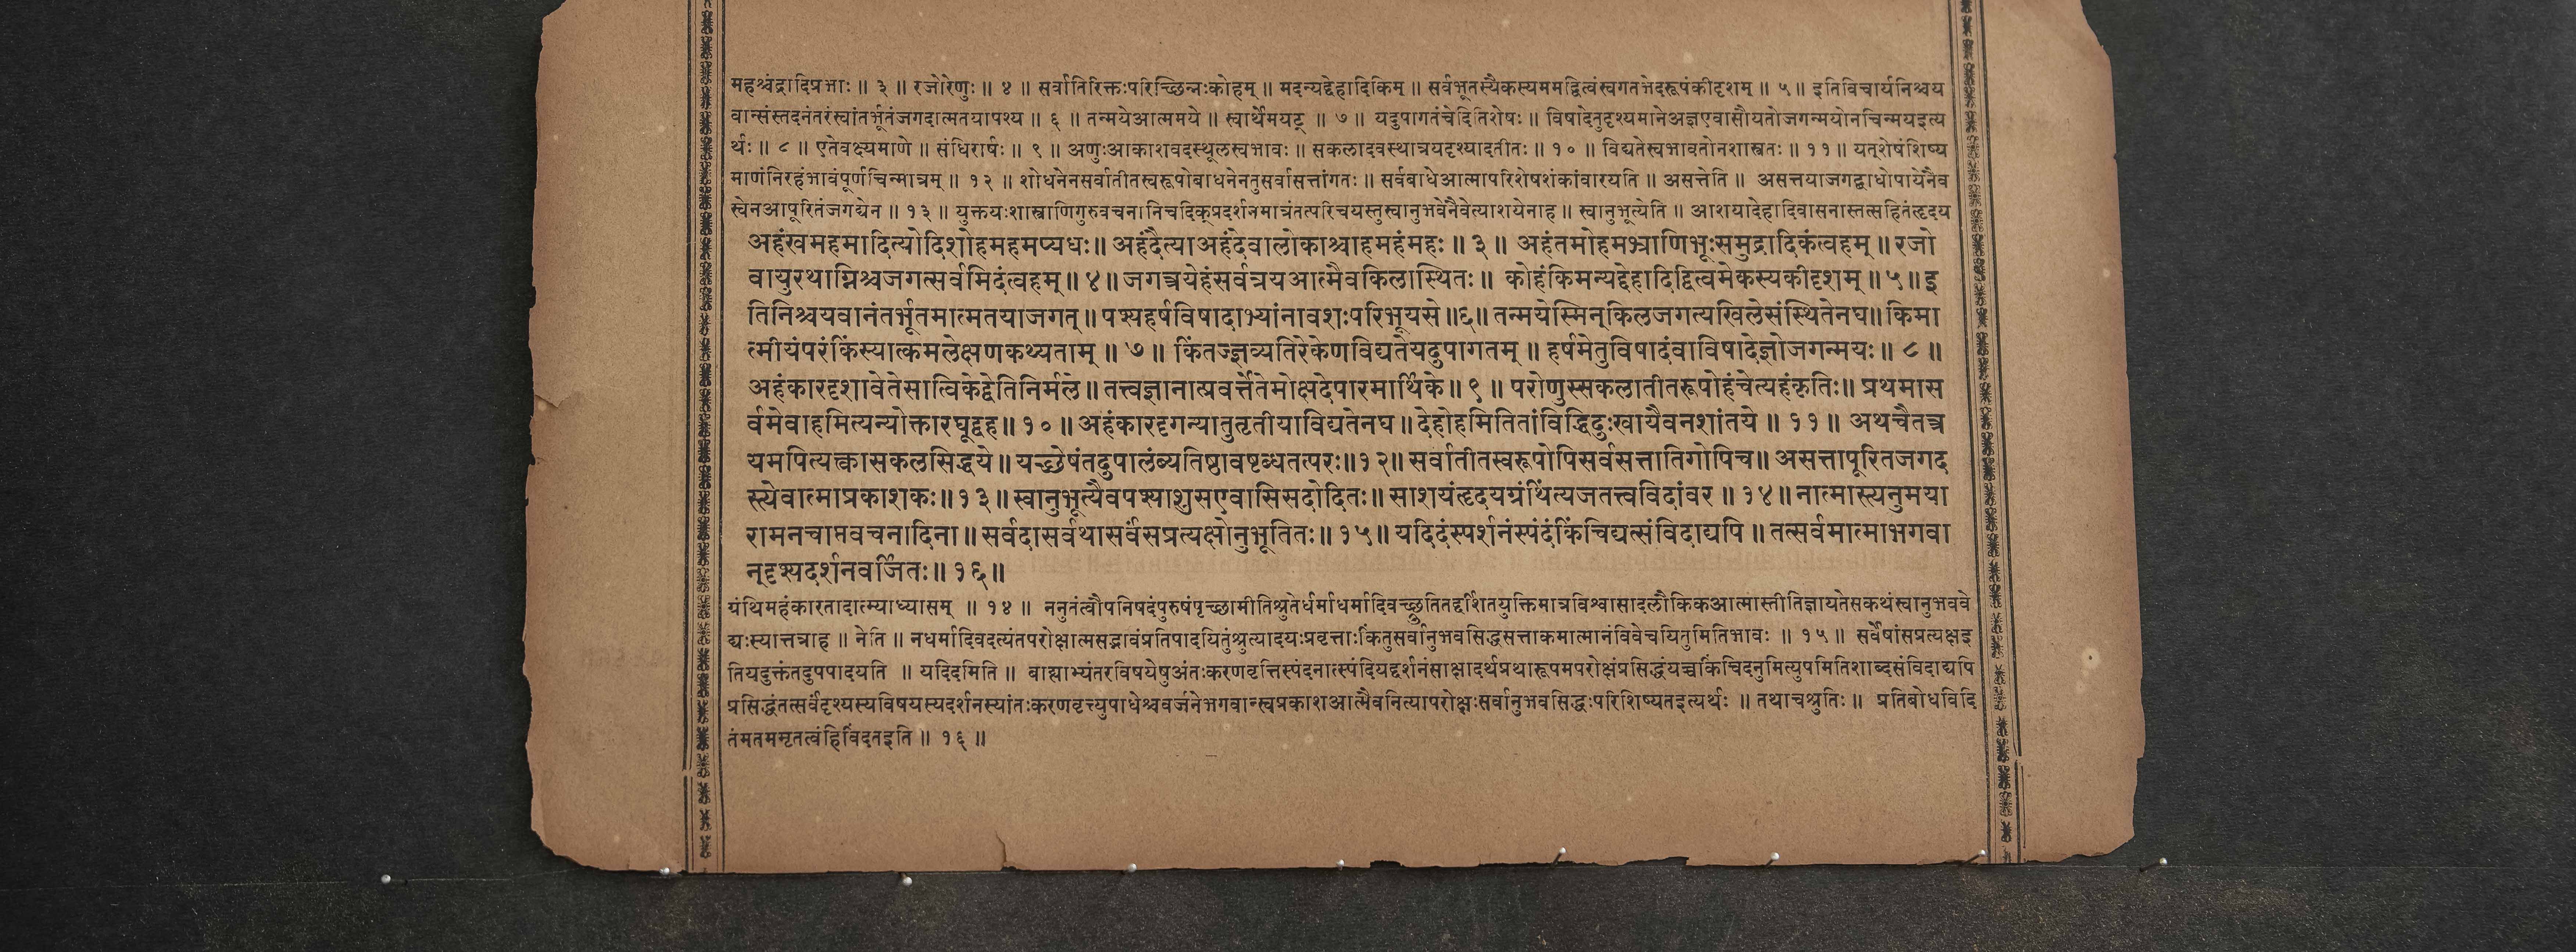 महश्चंद्रादिप्रभाः ॥ ३ ॥ रजोरेणुः ॥ ४ ॥ सर्वातिरिक्तःपरिच्छिन्नःकोहम् ॥ मदन्यद्देहादिकिम् ॥ सर्वभूतस्यैकस्यममद्वित्वंस्वगतभेदरूपंकीदृशम् ॥ ५ ॥ इतिविचार्यनिश्चय
वान्संस्तदनंतरंस्वांतर्भूतंजगदात्मतयापश्य ॥ ६ ॥ तन्मयेआत्ममये ॥ स्वार्थेमयट् ॥ ७ ॥ यदुपागतंचेदितिशेषः ॥ विषादेनुदृश्यमानेअज्ञएवासौयतोजगन्मयोनचिन्मयइत्य
र्थः ॥ ८ ॥ एतेवक्ष्यमाणे ॥ संधिरार्षः ॥ ९ ॥ अणुःआकाशवदस्थूलस्वभावः ॥ सकलादवस्थात्रयदृश्यादतीतः ॥ १० ॥ विद्यतेस्वभावतोनशास्त्रतः ॥ ११ ॥ यत्शेषंशिष्य
माणंनिरहंभावंपूर्णचिन्मात्रम् ॥ १२ ॥ शोधनेनसर्वातीतस्वरूपोबाधनेनतुसर्वासत्तांगतः ॥ सर्वबाधेआत्मापरिशेषशंकांवारयति ॥ असत्तेति ॥ असत्तयाजगद्बाधोपायेनैव
स्वेनआपूरितंजगद्येन ॥ १३ ॥ युक्तयःशास्त्राणिगुरुवचनानिचदिक्प्रदर्शनमात्रंतत्परिचयस्तुस्वानुभवेनैवेत्याशयेनाह ॥ स्वानुभूत्येति ॥ आशयादेहादिवासनास्तत्सहितंहृदय
अहंखमहमादित्योदिशोहमहमप्यधः॥ अहंदैत्याअहंदेवालोकाश्चाहमहंमहः ॥ ३ ॥ अहंतमोहमभ्राणिभूःसमुद्रादिकंत्वहम् ॥ रजो
वायुरथाग्निश्चजगत्सर्वमिदंत्वहम् ॥ ४ ॥ जगत्त्रयेहंसर्वत्रयआत्मैवकिलास्थितः ॥ कोहंकिमन्यद्देहादिद्वित्वमेकस्यकीदृशम् ॥ ५ ॥ इ
तिनिश्चयवानंतर्भूतमात्मतयाजगत् ॥ पश्यहर्षविषादाभ्यांनावशःपरिभूयसे ॥६॥ तन्मयेस्मिन्किलजगत्यखिलेसंस्थितेनघ॥ किमा
त्मीयंपरंकिंस्यात्कमलेक्षणकथ्यताम् ॥ ७ ॥ किंतज्ज्ञव्यतिरेकेणविद्यतेयदुपागतम् ॥ हर्षमेतुविषादंवाविषादेज्ञोजगन्मयः ॥ ८ ॥
अहंकारदृशावेतेसात्विकेद्वेतिनिर्मले ॥ तत्त्वज्ञानात्प्रवर्त्तेतेमोक्षदेपारमार्थिके ॥ ९ ॥ परोणुस्सकलातीतरूपोहंचेत्यहंकृतिः॥ प्रथमास
र्वमेवाहमित्यन्योक्तारघूद्वह ॥ १० ॥ अहंकारदृगन्यातुतृतीयाविद्यतेनघ ॥ देहोहमितितांविद्धिदुःखायैवनशांतये ॥ ११ ॥ अथचैतत्त्र
यमपित्यक्त्वासकलसिद्धये ॥ यच्छेषंतदुपालंब्यतिष्ठावष्टब्धतत्परः॥१२॥ सर्वातीतस्वरूपोपिसर्वसत्तातिगोपिच॥ असत्तापूरितजगद
स्त्येवात्माप्रकाशकः॥१३॥ स्वानुभूत्यैवपश्याशुसएवासिसदोदितः॥ साशयंहृदयग्रंथिंत्यजतत्त्वविदांवर ॥ १४ ॥ नात्मास्त्यनुमया
रामनचाप्तवचनादिना ॥ सर्वदासर्वथासर्वंसप्रत्यक्षोनुभूतितः॥ १५ ॥ यदिदंस्पर्शनंस्पंदंकिंचिद्यत्संविदाद्यपि ॥ तत्सर्वमात्माभगवा
न्दृश्यदर्शनवर्जितः॥ १६॥
ग्रंथिमहंकारतादात्म्याध्यासम् ॥ १४ ॥ ननुतंत्वौपनिषदंपुरुषंपृच्छामीतिश्रुतेर्धर्माधर्मादिवच्छ्रुतितद्दर्शितयुक्तिमात्रविश्वासादलौकिकआत्मास्तीतिज्ञायतेसकथंस्वानुभववे
द्यःस्यात्तत्राह ॥ नेति ॥ नधर्मादिवदत्यंतपरोक्षात्मसद्भावंप्रतिपादयितुंश्रुत्यादयःप्रवृत्ताःकिंतुसर्वानुभवसिद्धसत्ताकमात्मानंविवेचयितुमितिभावः ॥ १५ ॥ सर्वेषांसप्रत्यक्षइ
तियदुक्तंतदुपपादयति ॥ यदिदमिति ॥ बाह्याभ्यंतरविषयेषुअंतःकरणवृत्तिस्पंदनात्स्पंदियद्दर्शनंसाक्षादर्थप्रथारूपमपरोक्षंप्रसिद्धंयच्चकिंचिदनुमित्युपमितिशाब्दसंविदाद्यपि
प्रसिद्धंतत्सर्वंदृश्यस्यविषयस्यदर्शनस्यांतःकरणवृत्त्युपाधेश्चवर्जनेभगवान्स्वप्रकाशआत्मैवनित्यापरोक्षःसर्वानुभवसिद्धःपरिशिष्यतइत्यर्थः ॥ तथाचश्रुतिः ॥ प्रतिबोधविदि
तंमतममृतत्वंहिविंदतइति ॥ १६ ॥